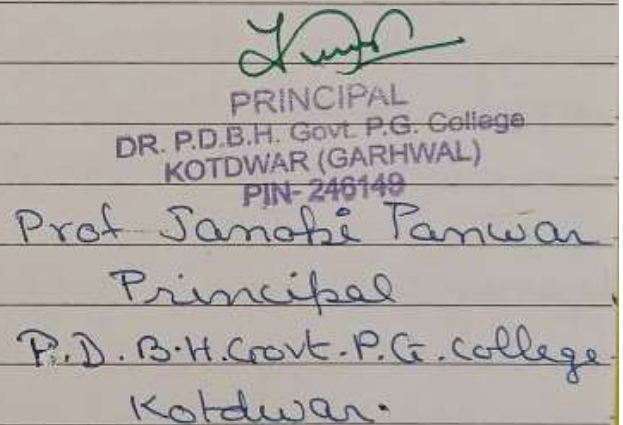 PRINCIPAL
DR. P.D.B.H. Govt. P.G. College
KOTDWAR (GARHWAL)
PIN- 246149
Prof Janaki Panwar
Principal
P.D.B.H. Govt. P.G. College
Kotdwar.